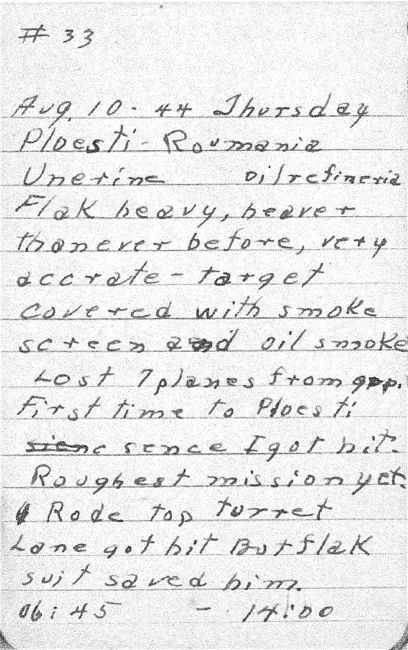 # 33
Aug. 10 - 44 Thursday
Ploesti - Roumania
Unerine oilrefineria
Flak heavy, heaver
thanever before, very
accrate - target
covered with smoke
screen and oil smoke
Lost 7 planes from grp.
First time to Ploesti
sience sence I got hit.
Roughest mission yet.
Rode top turret
Lane got hit But flak
suit saved him.
06:45 - 14:00